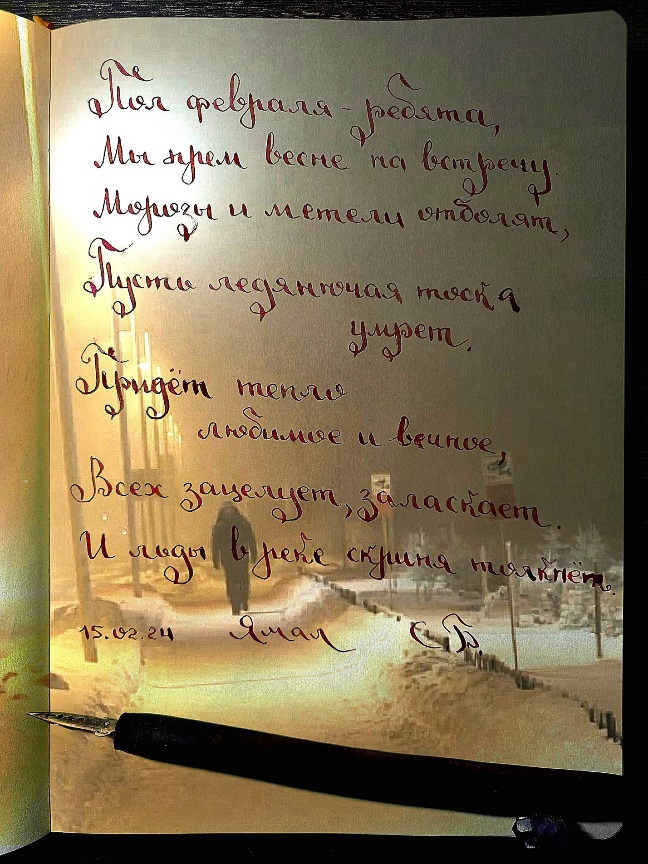 Пол февраля - ребята,
Мы прем весне на встречу
Морозы и метели отболят,
Пусть ледянючая тоска
умрет.
Придёт тепло
любимое и вечное,
Всех зацелует, заласкает.
И льды в реке скрипя толкнёт.
15.02.24 Ямал С.Б.